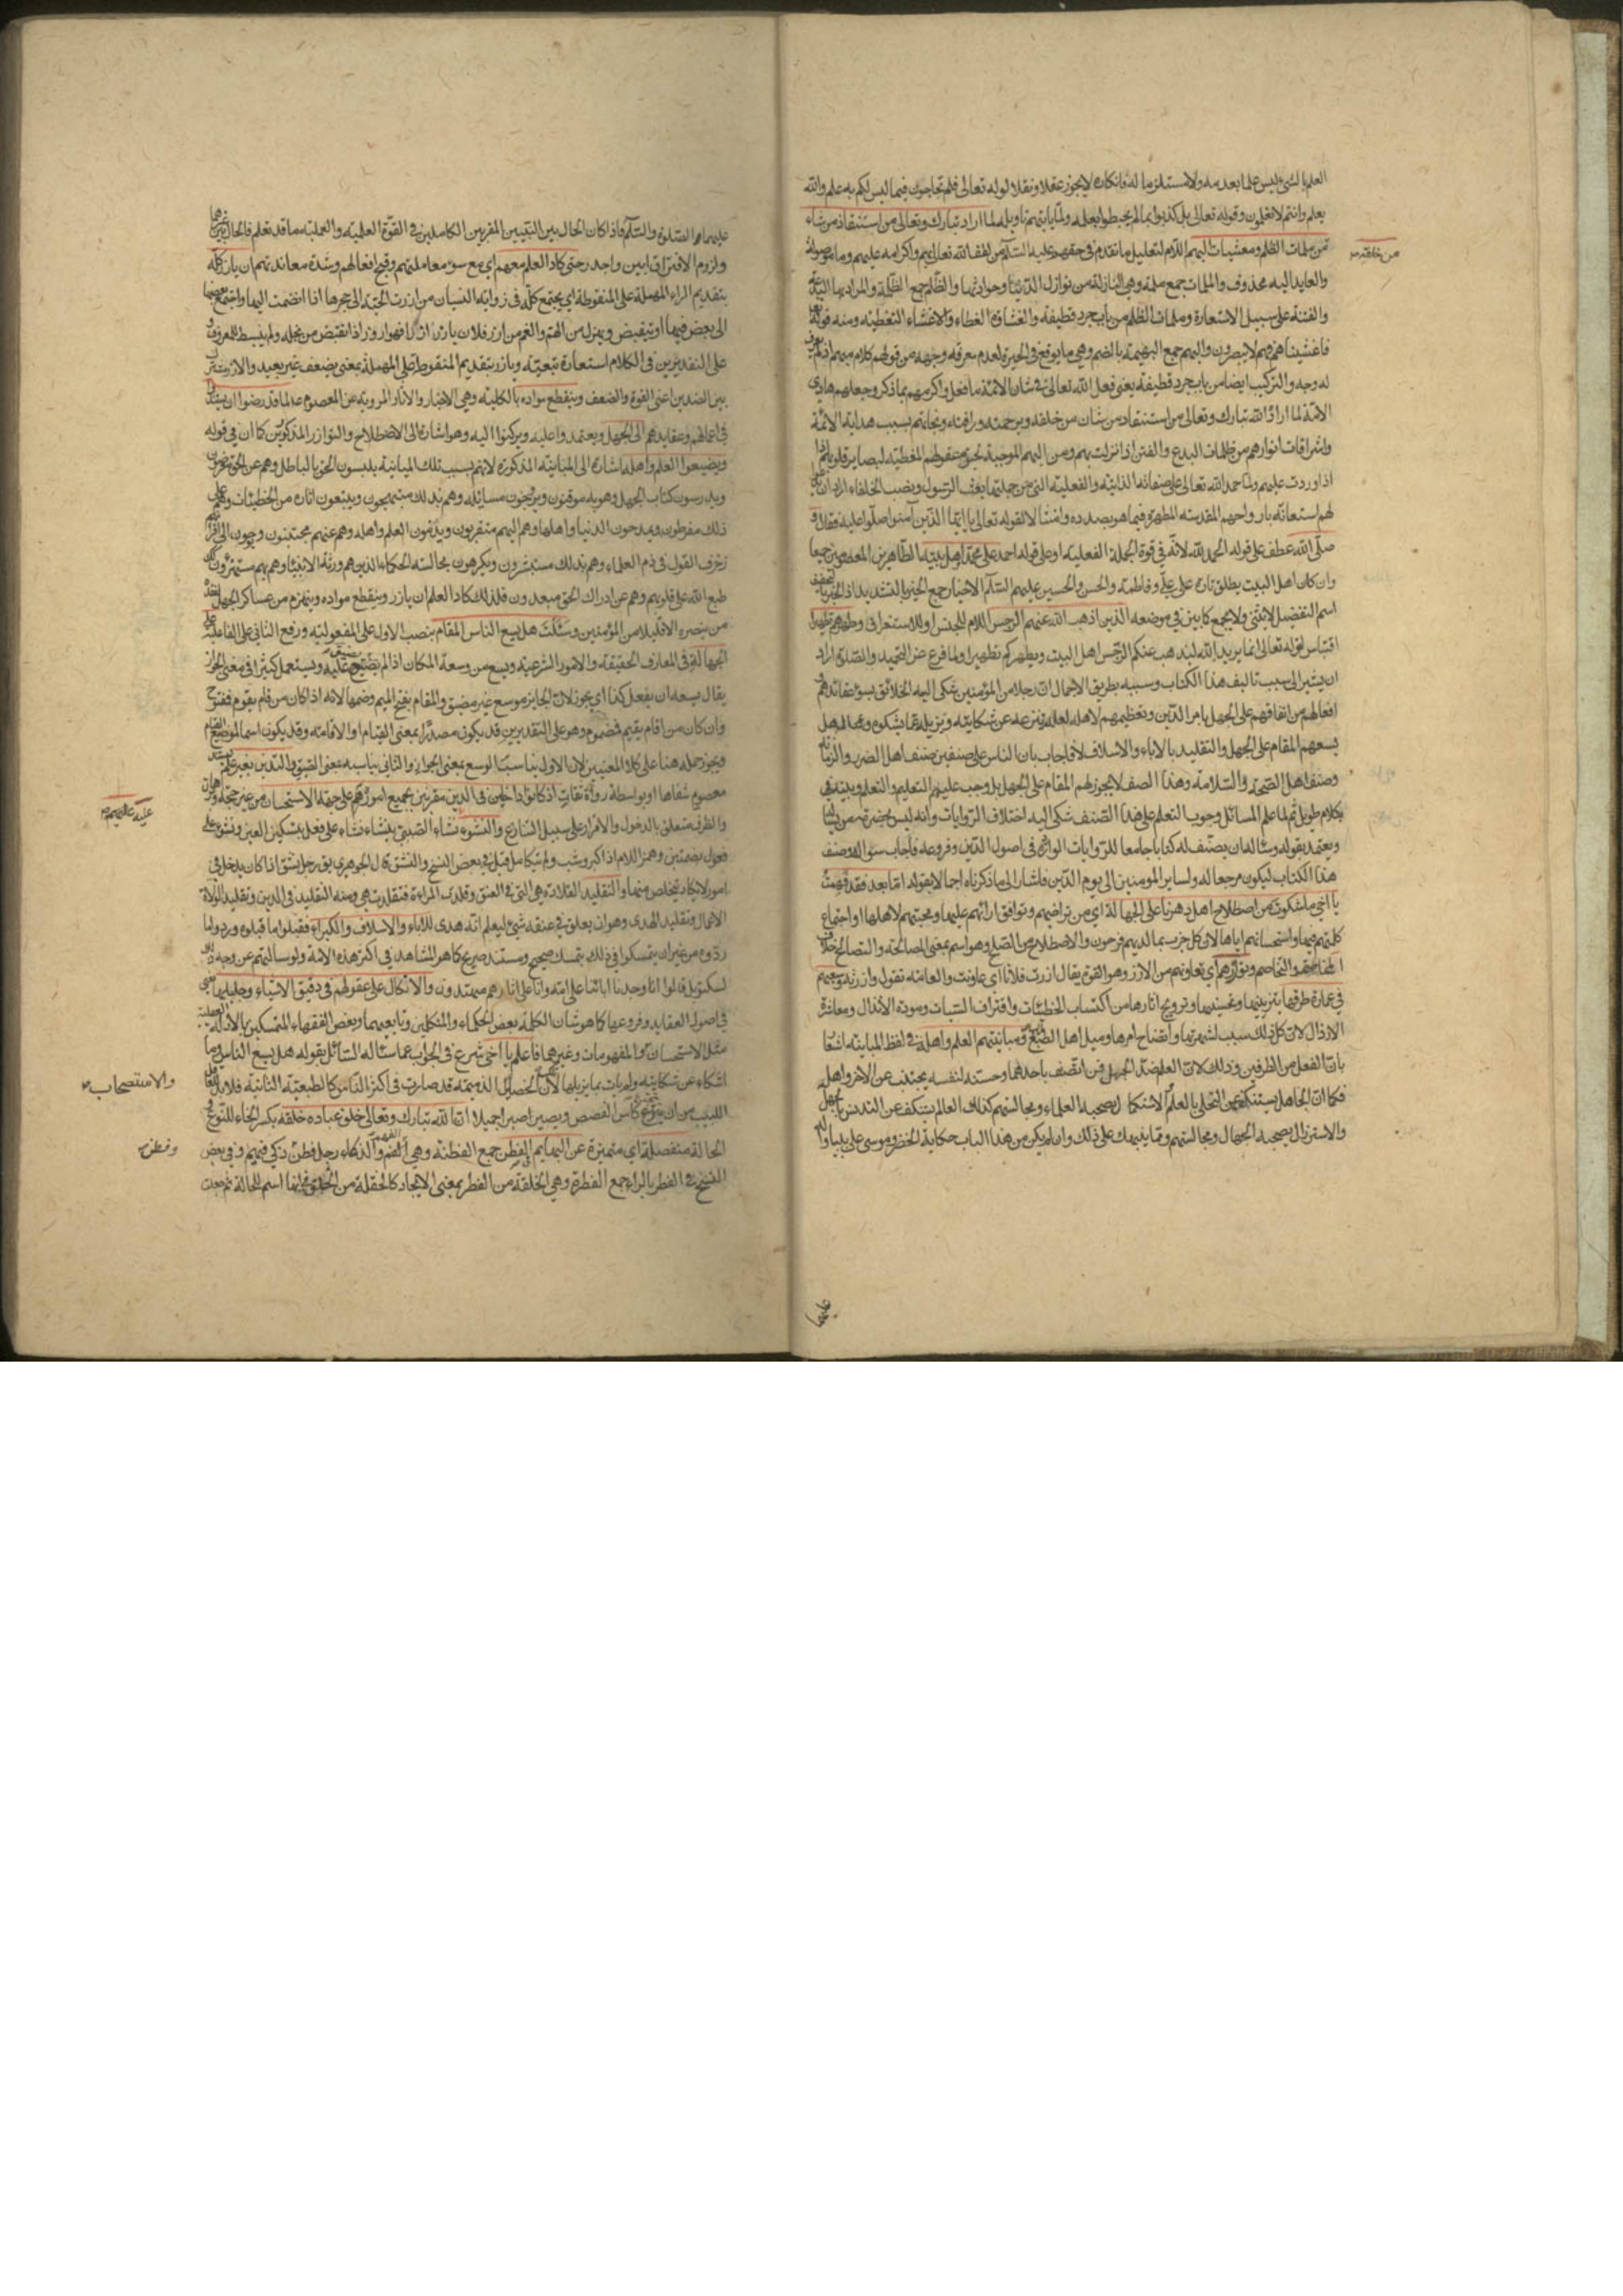 العلم بالشئ ليس علما بعدمه ولا مستلزما له فانكاره لا يجوز عقلا ونقلا لقوله تعالى فلم تحاجون فيما ليس لكم به علم والله
يعلم وانتم لا تعلمون وقوله تعالى بل كذبوا بما لم يحيطوا بعلمه ولما يأتهم تاويله لما اراد تبارك وتعالى من استنقاذ من شاء
من ملمات الظلم ومغشيات البهم اللام لتعليل ما تقدم في حقهم عليه السلام من لطف الله تعالى بهم واكرامه عليهم وما موصولة
من خلقه
والعايد اليه محذوف والملمات جمع ملمة وهي النازلة من نوازل الدنيا وحوادثها والظلم جمع الظلمة والمراد بها البدعة
والفتنة على سبيل الاستعارة وملمات الظلم من باب جرد قطيفة والغشاوة الغطاء والاغشاء التغطية ومنه قوله تعالى
فاغشيناهم فهم لا يبصرون والبهم جمع البهمة بالضم وهي ما يوقع في الحيرة لعدم معرفة وجهه من قولهم كلام مبهم اذا لم يعرف
له وجه والتركيب ايضا من باب جرد قطيفة يعني فعل الله تعالى في شان الائمة ما فعل واكرمهم بما ذكر وجعلهم هادي
الامة لما اراد الله تبارك وتعالى من استنقاذ من شان من خلقه وبرحمته ورافته ونجاتهم بسبب هداية الائمة
واشراقات انوارهم من ظلمات البدع والفتن اذا نزلت بهم ومن البهم الموجبة لحيرة عقولهم المغطية لبصاير قلوبهم اذا
اذا وردت عليهم ولما حمد الله تعالى على صفاته الذاتية والفعلية التي من جملتها بعث الرسول ونصب الخلفاء اراد ان يصلي
لهم استعانة بارواحهم المقدسة المطهرة فيما هو بصدده وامتثالا لقوله تعالى يا ايها الذين آمنوا صلوا عليه فقال و
صلى الله عطف على قوله الحمد لله لانه في قوة الجملة الفعلية او على قوله احمد على محمد واهل بيته الطاهرين المعصومين جميعا
وان كان اهل البيت يطلق تارة على علي وفاطمة والحسن والحسين عليهم السلام الاخيار جمع الخير بالتشديد اذ الخير بالتخفيف
اسم التفضيل لا يثنى ولا يجمع كما بين في موضعه الذين اذهب الله عنهم الرجس اللام للجنس او للاستغراق وطهرهم تطهيرا
اقتباس لقوله تعالى انما يريد الله ليذهب عنكم الرجس اهل البيت ويطهركم تطهيرا ولما فرغ عن التحميد والصلوة اراد
ان يشير الى سبب تاليف هذا الكتاب وسببه بطريق الاجمال ان رجلا من المؤمنين شكى اليه الخلائق بسوء عقائدهم و
افعالهم من اتفاقهم على الجهل بامر الدين وتعظيمهم لاهله لعله ينزعه عن شكايته ويزيله عما يشكوه وسأله هل
يسعهم المقام على الجهل والتقليد بالاباء والاسلاف لا فاجاب بان الناس على صنفين صنف اهل الضرر والزمانة
وصنف اهل الصحة والسلامة وهذا الصنف لا يجوز لهم المقام على الجهل بل وجب عليهم التعليم والتعلم وبينه
بكلام طويل ثم لما علم السائل وجوب التعلم على هذا الصنف شكى اليه اختلاف الروايات وانه ليس بحضرته من يشافه
ويعتمد بقوله وسأله ان يصنف له كتابا جامعا للروايات الواردة في اصول الدين وفروعه فاجاب سؤاله وصنف
هذا الكتاب ليكون مرجعا له ولساير المؤمنين الى يوم الدين فاشار الى ما ذكرناه اجمالا بقوله اما بعد فقد فهمت
يا اخي ما شكوت من اصطلاح اهل دهرنا على الجهالة اي من تراضيهم وتوافق ارائهم عليها ومحبتهم لاهلها واجتماع
كلمتهم فيها واستحسانهم اياها لان كل حزب بما لديهم فرحون والاصطلاح من الصلح وهو اسم بمعنى المصالحة والتصالح خلاف
المخاصمة والتخاصم وتوازرهم اي تعاونهم من الازر وهو القوة يقال ازرت فلانا اي عاونت والعامة تقول وازرته وسعيهم
في عمارة طرقها بتزيينها وتحسينها وترويج اثارها من اكتساب الخطيئات واقتراف السيئات ومودة الانذال ومعاشرة
الارذال لان كل ذلك سبب لشهرتها واتضاح امرها وميل اهل الطبع ومباينتهم العلم واهله في لفظ المباينة اشعار
بان الفعل من الطرفين وذلك لان العلم ضد الجهل فمن اتصف باحدهما وحسنه لنفسه يجتنب عن الاخر واهله
فكما ان الجاهل يستنكف عن التحلي بالعلم والاستكمال بصحبة العلماء ومجالستهم كذلك العالم يستنكف عن التدنس بالجهل
والاسترذال بصحبة الجهال ومجالستهم ومما ينبهك على ذلك وان لم يكن من هذا الباب حكاية الخضر وموسى على نبينا واله
عليهما
عليهما الصلوة والسلام فاذا كان الحال بين النبيين المقربين الكاملين في القوة العلمية والعملية ما قد تعلم فالحال بين غيرهما
ولزوم الافتراق ابين واجدر حتى كاد العلم معهم اي مع سوء معاملتهم وقبح افعالهم وشدة معاندتهم ان يارز كله
بتقديم الراء المهملة على المنقوطة اي يجتمع كله في زواية النسيان من ارزت الحية الى جحرها اذا انضمت اليها واجتمع بعضها
الى بعض فيها او ينقبض ويهزل من الهم والغم من ارز فلان يارز ارزا فهو اروز اذا تقبض من بخله ولم ينبسط للمعروف و
على التقديرين في الكلام استعارة تبعية ويازر بتقديم المنقوطة على المهملة بمعنى يضعف غير بعيد والازر مشترك
بين الضدين اعني القوة والضعف وينقطع مواده بالكلية وهي الاخبار والاثار المروية عن المعصوم عل لما قد رضوا ان يستندوا
في اعمالهم وعقايدهم الى الجهل ويعتمدوا عليه ويركنوا اليه وهو اشارة الى الاصطلاح والتوازر المذكورين كما ان في قوله
ويضيعوا العلم واهله اشارة الى المباينة المذكورة لانهم بسبب تلك المباينة يلبسون الحق بالباطل وهم عن الحق معرضون
ويدرسون كتاب الجهل وهو به موقنون ويروجون مسائله وهم بذلك مبتهجون ويتبعون اثاره من الخطيئات وهم على
ذلك مفرطون ويمدحون الدنيا واهلها وهم اليهم متقربون ويذمون العلم واهله وهم عنهم مجتنبون ويوحون الى اقرانهم
زخرف القول في ذم العلماء وهم بذلك مستبشرون ويكرهون مجالسة الحكماء الذين هم ورثة الانبياء وهم بهم مستهزؤن كذلك
طبع الله على قلوبهم وهم عن ادراك الحق مبعدون فلذلك كاد العلم ان يازر وينقطع مواده وينهزم من عساكر الجهل لفقده
من ينصره الا قليلا من المؤمنين وسئلت هل يسع الناس المقام بنصب الاول على المفعولية ورفع الثاني على الفاعلية على
الجهالة في المعارف الحقيقية والامور الشرعية ويسع من وسعه المكان اذا لم يضق عليه ويستعمل كثيرا في معنى الجواز
يقال يسعه ان يفعل كذا اي يجوز لان الجايز موسع غير مضيق والمقام بفتح الميم وضمها لانه اذا كان من قام يقوم فمفتوح
وان كان من اقام يقيم فمضموم وهو على التقديرين قد يكون مصدرا بمعنى القيام او الاقامة وقد يكون اسما لموضع القيام
ويجوز حمله هنا على كلا المعنيين لان الاول يناسب الوسع بمعنى الجواز والثاني يناسبه بمعنى الضيق والتدين بغير علم مستند
معصوم شفاها او بواسطة رواة ثقات اذ كانوا داخلين في الدين مقرين بجميع اموره على جهة الاستحسان من غير حجة وبرهان
عليه عليهم
والظرف متعلق بالدخول والاقرار على سبيل التنازع والنشوء نشاء الصبي ينشاء نشاء على فعل بتسكين العين ونشوء على
فعول بضمتين وهمز اللام اذا كبر وشب ولم يتكامل قيل في بعض النسخ والنشق قال الجوهري يق رجل نشق اذا كان يدخل في
امور لا يكاد يتخلص منها والتقليد القلادة هي التي في العنق وقلدت المراءة فتقلدت هي ومنه التقليد في الدين وتقليد الولاة
الاعمال وتقليد الهدى وهو ان يعلق في عنقه شئ ليعلم انه هدى للاباء والاسلاف والكبراء فقبلوا ما قبلوه وردوا ما
ردوه من غير ان يتمسكوا في ذلك بتمسك صحيح ومستند صريح كما هو المشاهد في اكثر هذه الامة ولو سالتهم عن وجه ذلك
لسكتوا بل قالوا انا وجدنا ابائنا على امة وانا على اثارهم مهتدون والاتكال على عقولهم في دقيق الاشياء وجليلها يعني
في اصول العقايد وفروعها كما هو شان الكلمة بعض الحكماء والمتكلمين وتابعيهما وبعض الفقهاء المتمسكين بالادلة العقلية
مثل الاستحسان والمفهومات وغيرهما فاعلم يا اخي شرع في الجواب عما ساله السائل بقوله هل يسع الناس وما
والاستصحاب
اشكاه عن شكايته ولم يات بما يزيلها لان الخصايل الذميمة قد صارت في اكثر الناس كالطبيعة الثانية فلا بد للعاقل
اللبيب من ان يتجرع كاس الغصص ويصبر صبرا جميلا ان الله تبارك وتعالى خلق عباده خلقة بكسر الخاء للنوع و
الحالة منفصلة اي متميزة عن البهايم في الفطن جمع الفطنة وهي الفهم والذكاء رجل فطن ذكي فهيم وفي بعض
وفطن
النسخ في الفطر بالراء جمع الفطرة وهي الخلقة من الفطر بمعنى الايجاد كالخلقة من الخلق في انها اسم للحالة ثم جعلت